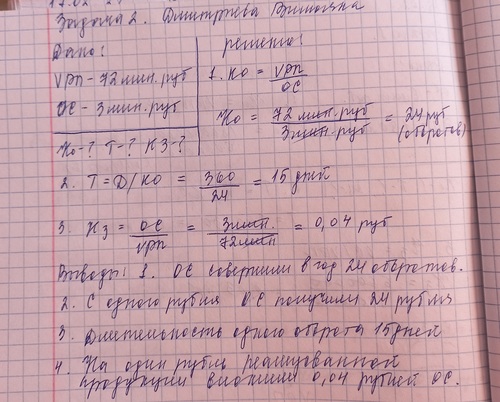 Задача 2. Дмитриева
Дано:
VРП - 72 млн. руб
ОС - 3 млн. руб
Ко - ? Т - ? КЗ - ?
решение:
1. Ко = VРП / ОС
Ко = 72 млн. руб / 3 млн. руб = 24 руб (оборотов)
2. Т = Д/КО = 360 / 24 = 15 дней
3. Кз = ОС / VРП = 3 млн. / 72 млн = 0,04 руб
Выводы: 1. ОС совершили в год 24 оборотов.
2. С одного рубля ОС получили 24 рубля
3. Длительность одного оборота 15 дней
4. На один рубль реализованной
продукции вложили 0,04 рублей ОС.